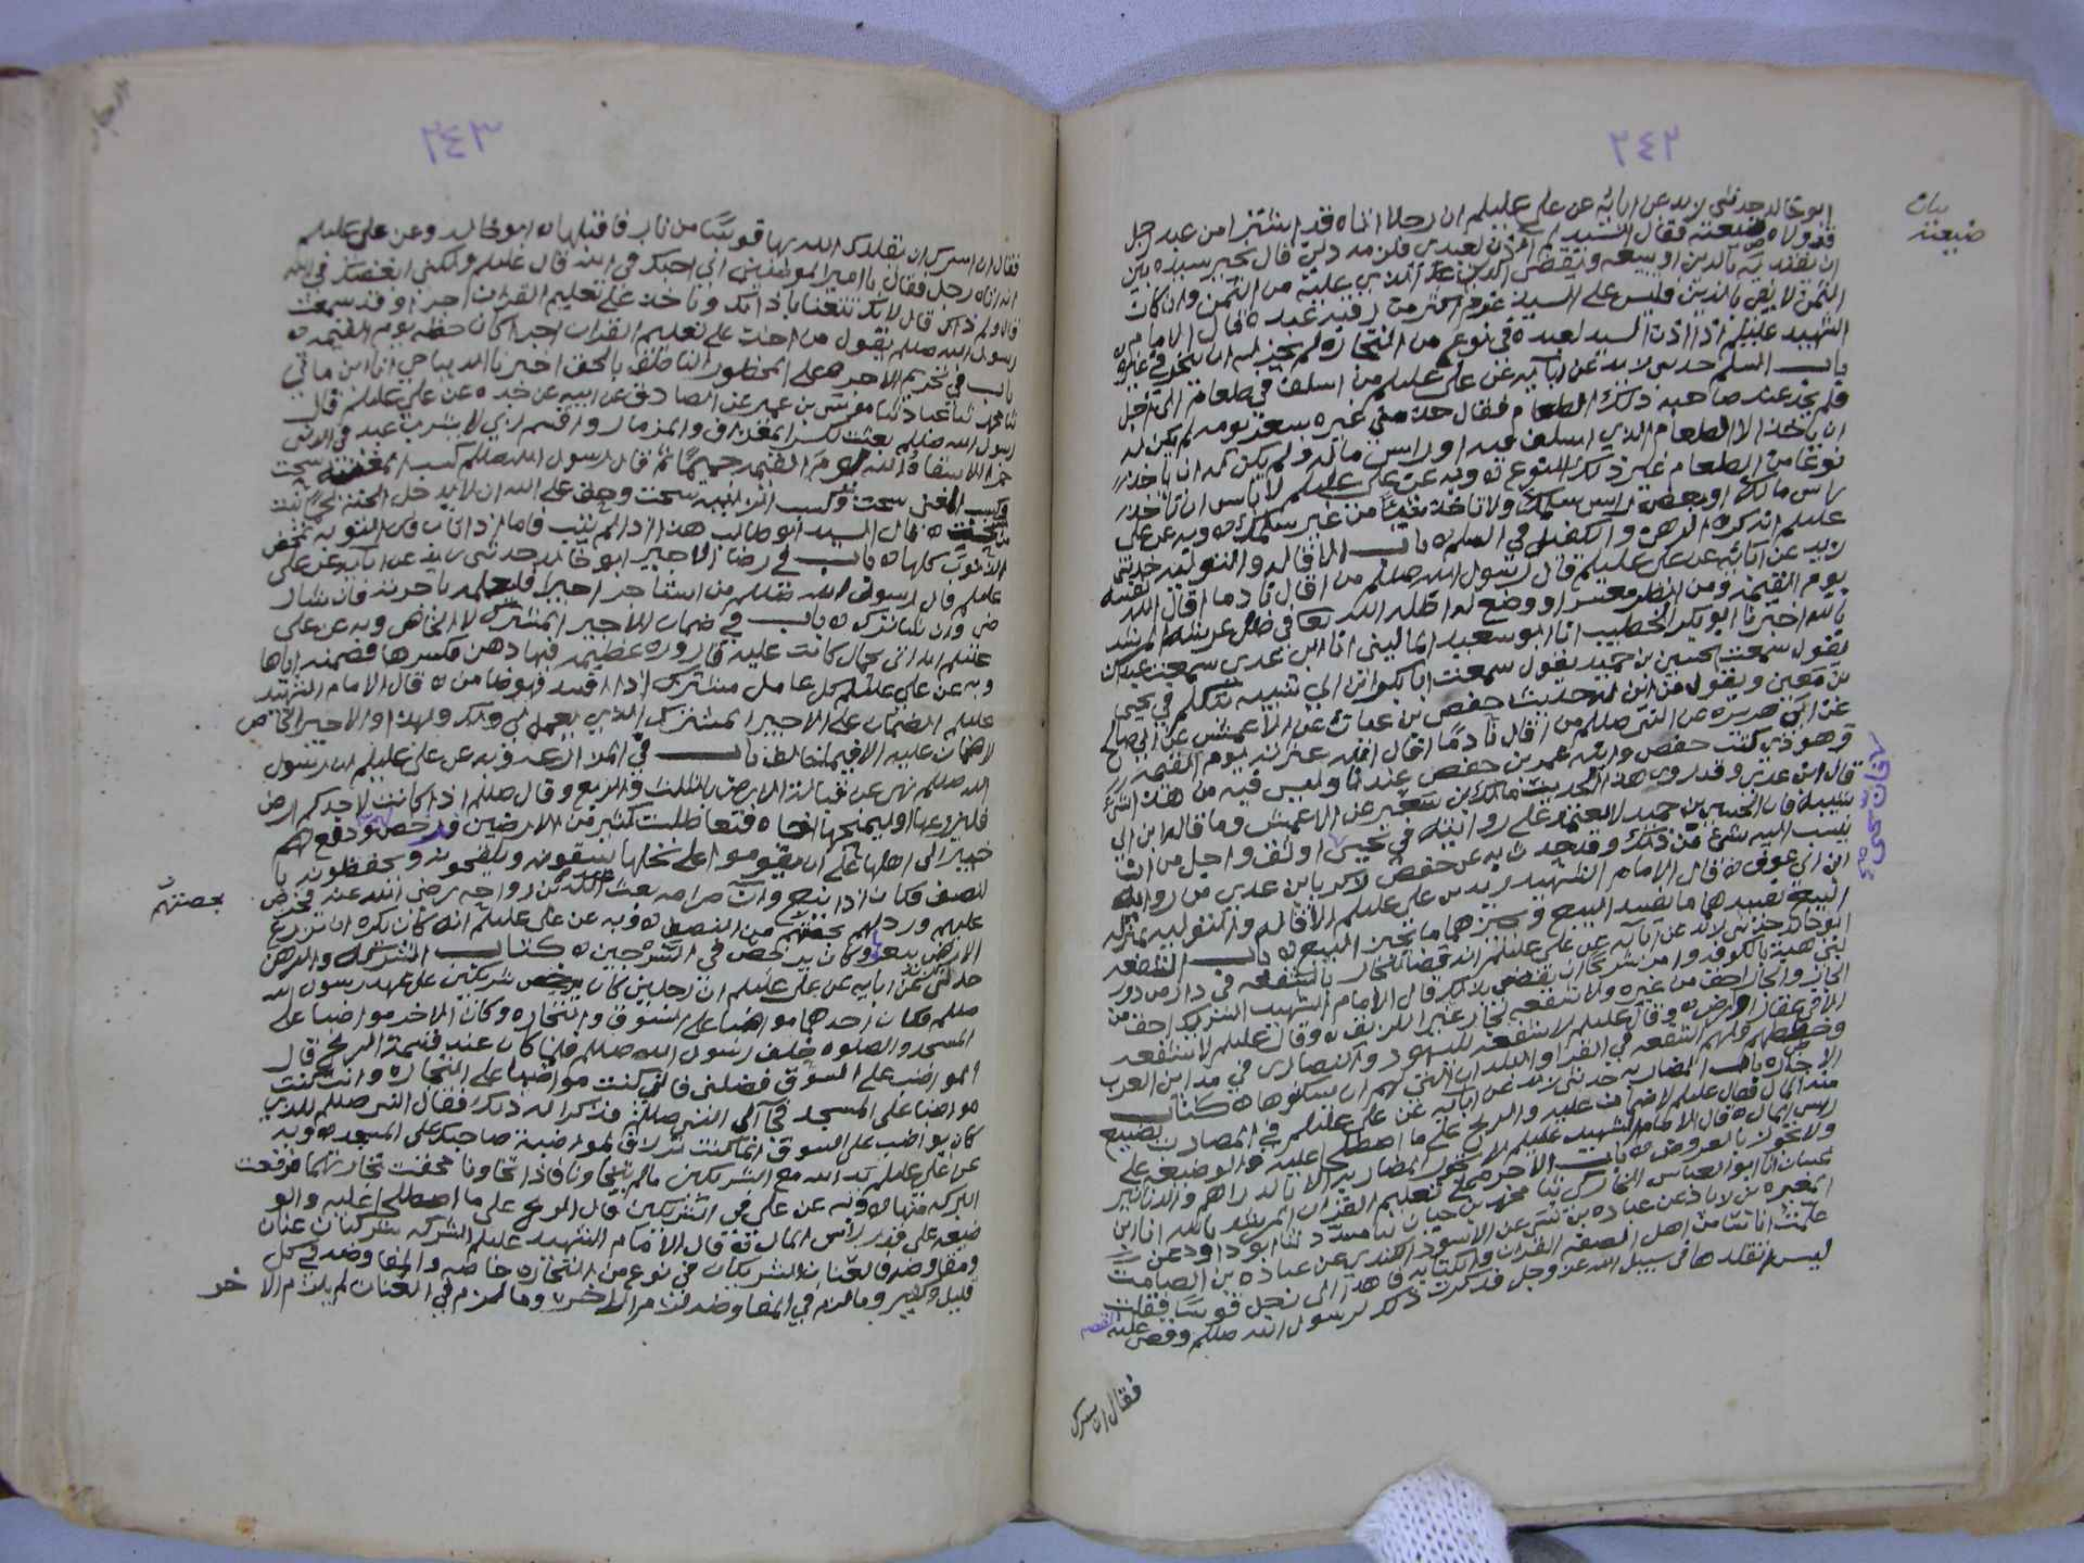 ٢٤٢
بيان
ضيعته
ابو خالد حدثني زيد عن ابائه عن علي عليلم ان رجلا اتاه قد اشترا من عبد رجل
قد ولاه ضيعته فقال السيد لم اذن لعبدي قال يخير سيده بين
ان يفتديه بالدين او يبيعه ويقضي الذي عليه من الثمن وان كان
الثمن لا يفي بالدين فليس على السيد غرم اكثر من رقبة عبده قال الامام
الشهيد عليلم اذا اذن السيد لعبده في نوع من التجاره لم يجز له ان يتجر في غيره
باب السلم حدثني زيد عن ابائه عن علي عليلم من اسلف في طعام الى اجل
فلم يجد عند صاحبه ذلك الطعام فقال خذ مني غيره بسعر يومه لم يكن له
ان ياخذ الا الطعام الذي اسلف فيه او راس ماله ولم يكن له ان ياخذ
نوعا من الطعام غير ذلك النوع وبه عن علي عليلم لا باس ان تاخذ
راس مالك او بعض راس سلمك ولا تاخذ شيئا من غير سلمك وبه عن علي
عليلم انه كره الرهن والكفيل في السلم باب الاقاله والتوليه حدثني
زيد عن ابائه عن علي عليلم قال رسول الله صللم من اقال نادما اقال الله
يوم القيمه ومن انظر معسرا او ووضع له اظله الله تعا في ظل عرشه المرشد
بالله اخبرنا ابو بكر الخطيب انا ابو سعيد الماليني انا ابن عدي سمعت عبدان
يقول سمعت الحسين بن حميد يقول سمعت ابا بكر بن ابي شيبه يتكلم في يحيى
بن معين ويقول من اين له حديث حفص بن غياث عن الاعمش عن ابي صالح
عن ابي هريره عن النبي صللم من اقال نادما اقال الله عثرته يوم القيمه
وهو ذي كتب حفص وابنه عمر بن حفص عندنا وليس فيه من هذا شي
قال ابن عدي وقد روى هذا الحديث مالك بن سعير عن الاعمش وما قاله ابن ابي
شيبه فان الحسين بن حميد لا يعتمد على روايته في يحيى اوثق واجل من ان
ينسب اليه شي من ذلك وقد حدث به عن حفص زكريا بن عدي من روايه
ابن ابي عوف قال الامام الشهيد زيد بن علي عليلم الاقاله والتوليه بمنزله
البيع يفسدهما ما يفسد البيع ويجيزهما ما يجيز البيع باب الشفعه
ابو خالد حدثني زيد عن ابائه عن علي عليلم انه قضا للجار بالشفعه في دار من دور
بني مرهبه بالكوفه وامر شريحا ان يقضي بذلك قال الامام الشهيد الشريك احق من
الجار والجار احق من غيره ولا شفعه لجار غير اللزيق وقال عليلم لا شفعه
الا في عقار او ارض وقال عليلم لا شفعه لليهود والنصارى في مداين العرب
وخططهم ولهم الشفعه في القرا والبلدان التي لهم ان يسكنوها كتاب
الاجاره باب المضاربه حدثني زيد عن ابائه عن علي عليلم في المضارب يضيع
منه المال فقال عليلم لا ضمان عليه والربح على ما اصطلحا عليه والوضيعه على
راس المال قال الامام الشهيد عليلم لا تجوز المضاربه الا بالدراهم والدنانير
ولا تجوز بالعروض باب الاجره على تعليم القران المرشد بالله انا ابن
غسان انا ابو العباس ثنا محمد بن حيان ثنا مسدد ثنا ابو داود عن
المغيره بن زياد عن عباده بن نسي عن الاسود الكندي عن عباده بن الصامت
علمت اناسا من اهل الصفه القران والكتابه فاهدا الي رجل قوسا فقلت
ليس اتقلدها في سبيل الله عز وجل فذكرت ذلك لرسول الله صللم وقص عليه القصه
فقال ان سرك
٢٤٣
فقال ان سرك ان يقلدك الله بها قوسا من نار فاقبلها ابو خالد وعن علي عليلم
انه اتاه رجل فقال يا امير المومنين اني احبك في الله قال عليلم ولكني ابغضك في الله
قال ولم ذاك قال لانك تتغنا باذانك وتاخذ على تعليم القران اجرا وقد سمعت
رسول الله صللم يقول من اخذ على تعليم القران اجرا كان حظه يوم القيمه
باب في تحريم الاجره على المحظور الناطق بالحق اخبرنا الديباجي انا ابن ماتي
ثنا محمد ثنا عباد ثنا موسى بن عمير عن الصادق عن ابيه عن جده عن علي عليلم قال
رسول الله صللم بعثت بكسر المعزاف والمزمار واقسم ربي لا يشرب عبد في الدنيا
خمرا الا سقاه الله يوم القيمه حميما ثم قال رسول الله صللم كسب المغنيه سحت
وكسب المغني سحت وكسب الزانيه سحت وحق على الله ان لا يدخل الجنه لحم نبت
من سحت قال السيد ابو طالب هذا اذا لم يتب فاما اذا تاب فان التوبه تمحص
الذنوب كلها باب في رضا الاجير ابو خالد حدثني زيد عن ابائه عن علي
عليلم قال رسول الله صللم من استاجر اجيرا فليعلمه باجرته فان شا رضي
وان شا ترك باب في ضمان الاجير المشترك لا الخاص وبه عن علي
عليلم انه اتي بحمال كانت عليه قاروره عظيمه فيها دهن فكسرها فضمنه اياها
وبه عن علي عليلم كل عامل مشترك اذا افسد فهو ضامن قال الامام الشهيد
عليلم الضمان على الاجير المشترك الذي يعمل لي ولك ولهذا والاجير الخاص
لا ضمان عليه الا فيما خالف باب في المزارعه وبه عن علي عليلم ان رسول
الله صللم نهى عن قباله الارض بالثلث والربع وقال صللم اذا كانت لاحدكم ارض
فليزرعها او ليمنحها اخاه فتعاطلت كثير من الارضين فرخص ودفع لهم
خيبر الى اهلها على ان يقوموا على نخلها يسقونه ويلقحونه ويحفظونه
بالنصف فكان اذا اينع وان صرامه بعث عبد الله بن رواحه رضي الله عنه فخرص
عليهم ورد لهم بحصتهم من النصف وبه عن علي عليلم انه كان يكره ان تزرع
الارض ببعر وكان يرخص في السرجين كتاب الشركه والرهن
حدثني عن ابائه عن علي عليلم ان رجلين كانا شريكين على عهد رسول الله
صللم فكان احدهما مواظبا على السوق والتجاره وكان الاخر مواظبا على
المسجد والصلوه خلف رسول الله صللم فلما كان عند قسمة الربح قال
المواظب على السوق فضلني فاني كنت مواظبا على التجاره وانت كنت
مواظبا على المسجد فجآ الى النبي صللم فذكرا له ذلك فقال النبي صللم للذي
كان يواظب على السوق انما كنت ترزق لمواظبة صاحبك على المسجد وبه
عن علي عليلم يد الله مع الشريكين مالم يتخاونا فاذا تخاونا محقت تجارتهما فرفعت
البركه منها وبه عن علي في الشريكين قال الربح على ما اصطلحا عليه والو
ضيعه على قدر راس المال قال الامام الشهيد عليلم الشركه شركتان عنان
ومفاوضه فالعنان الشريكان في نوع من التجاره خاصه والمفاوضه في كل
قليل وكثير وما لزم في المفاوضه لزم الاخر وما لزم في العنان لم يلزم الاخر
بحصتهم